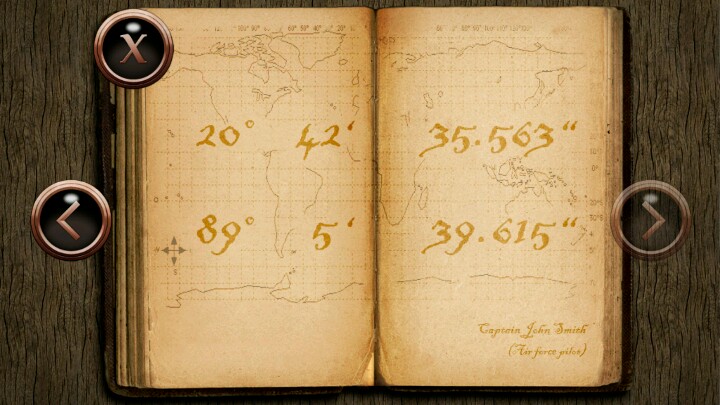 X
20° 42‘ 35.563“
89° 5‘ 39.615“
Captain John Smith
(Air force pilot)